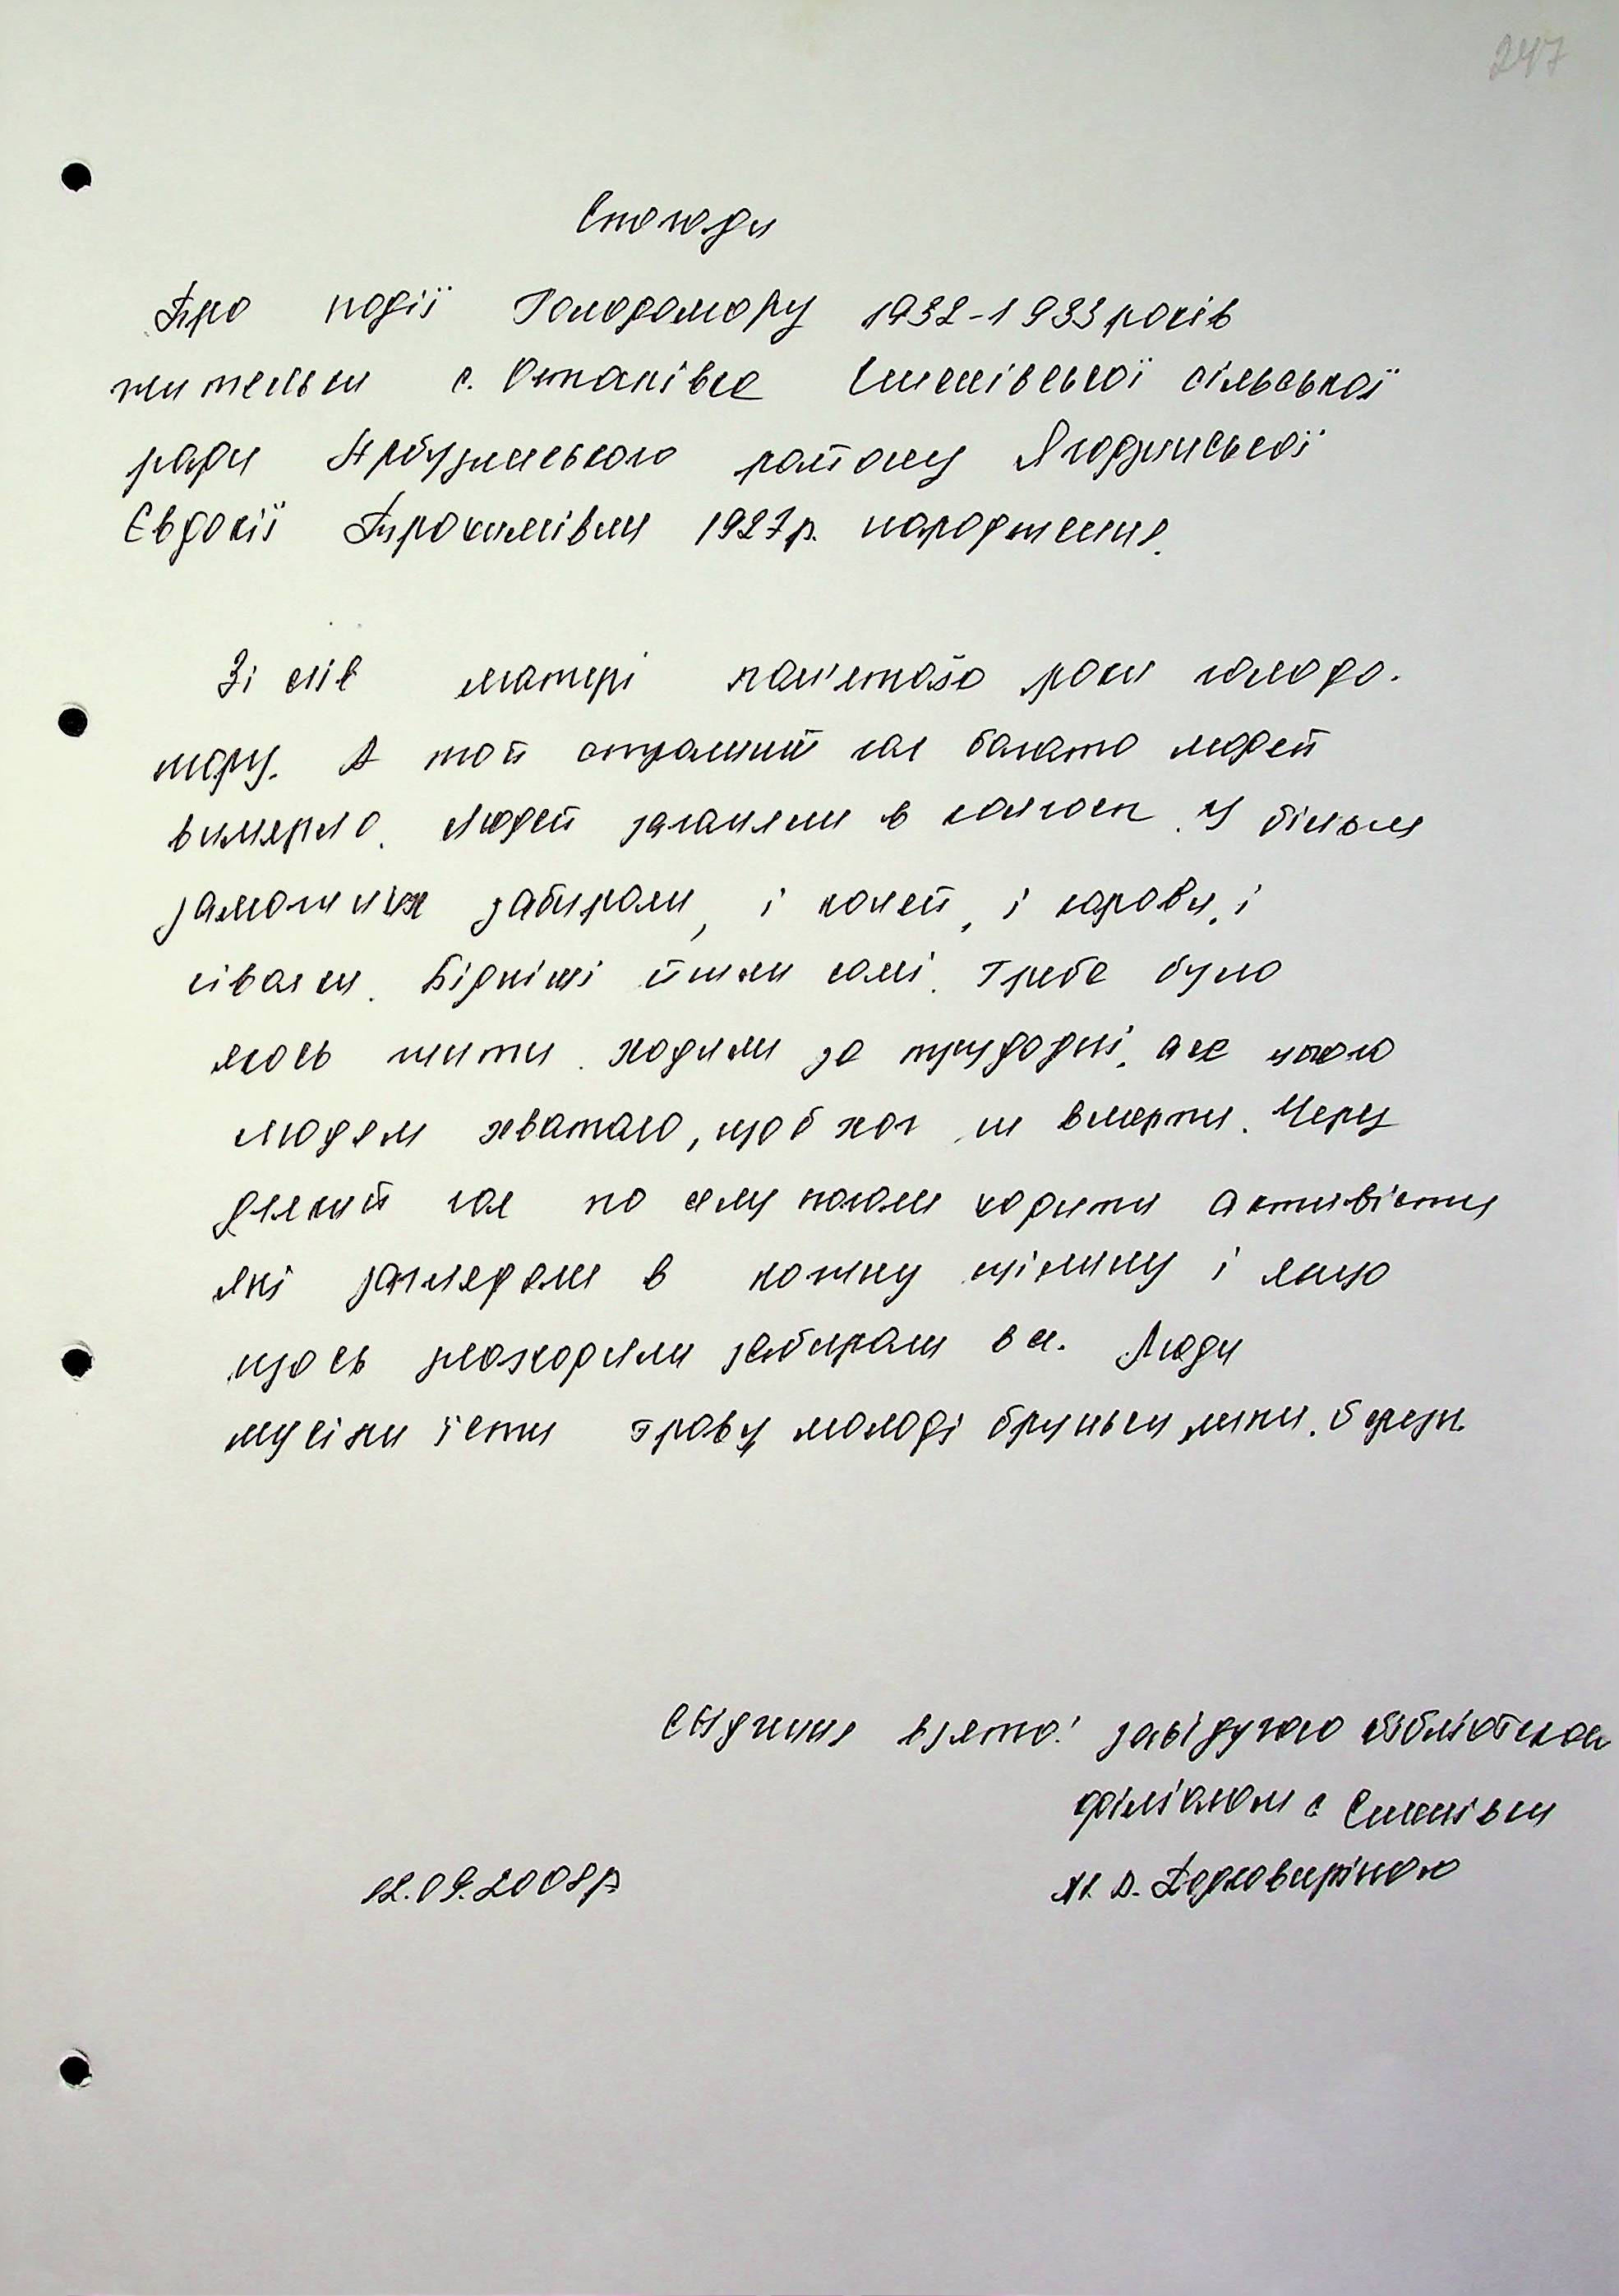 247
Спогади
Про події Голодомору 1932-1933 років
жительки с. Остапівка Синенівської сільської
ради Арбузинського району Ягодзинської
Євдокії Прокипівни 1927р. народження.
Зі слів матері пам'ятаю роки голодо-
мору. В той страшний час багато людей
вимерло. Людей заганяли в колгосп. У більш
заможних забирали, і коней, і корови, і
сівалки. Бідніші йшли самі. Треба було
якось жити. Ходили за трудодні, але цього
людям хватало, щоб хоч не вмерти. Через
деякий час по селу почали ходити активісти
які заглядали в кожну щілину і якщо
щось знаходили забирали все. Люди
мусіли їсти траву, молоді бруньки липи, берези.
Свідчення взято: завідуючою бібліотекою
філіалом с
12.09.2008р